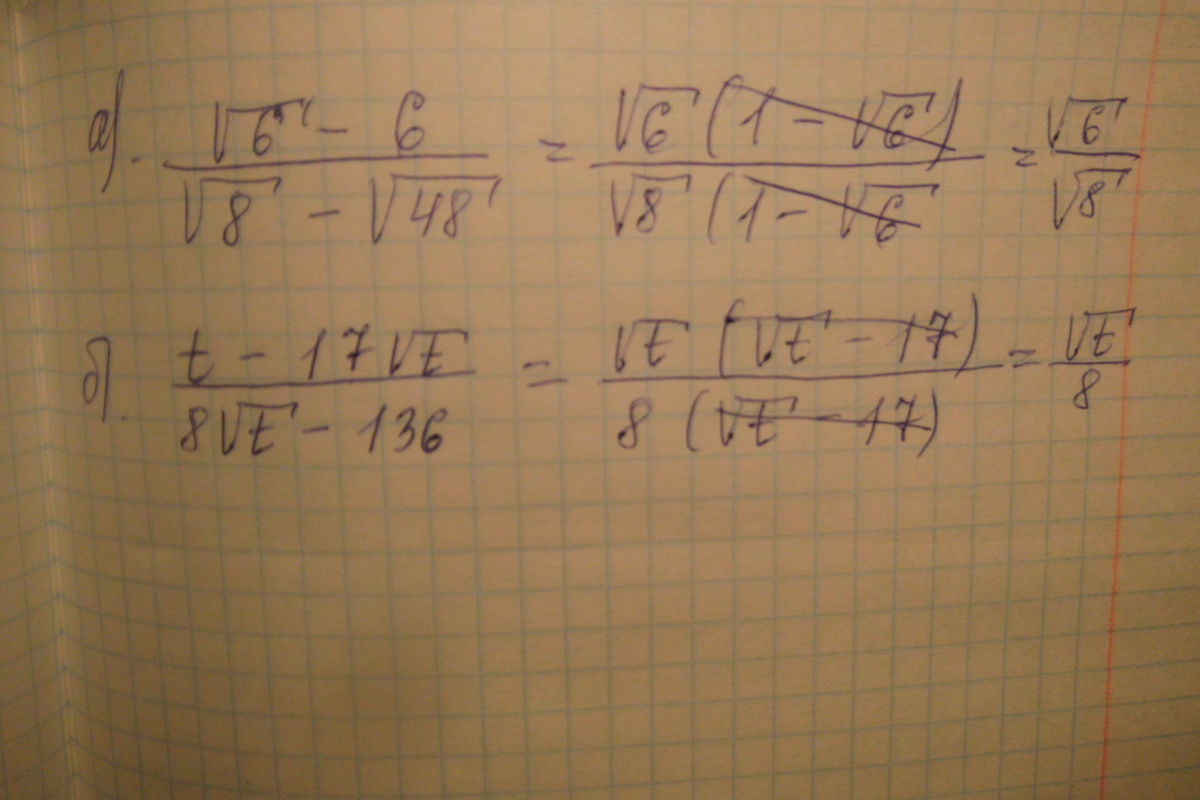 а). (√6 - 6)/(√8 - √48) = (√6 (1 - √6))/(√8 (1 - √6) = √6/√8
б). (t - 17√t)/(8√t - 136) = (√t (√t - 17))/(8 (√t - 17)) = √t/8